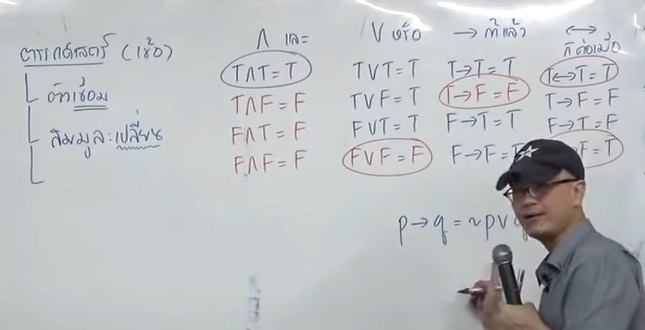 ตรรกศาสตร์ (เชื่อ)
ตัวเชื่อม
สมมูล:เปลี่ยน
∧ และ
T∧T = T
T∧F = F
F∧T = F
F∧F = F
∨ หรือ
T∨T = T
T∨F = T
F∨T = T
F∨F = F
→ ถ้าแล้ว
T→T = T
T→F = F
F→T = T
F→F =
↔ ก็ต่อเมื่อ
T↔T = T
T→F = F
F→T = F
F = T
p→q = ~p∨q